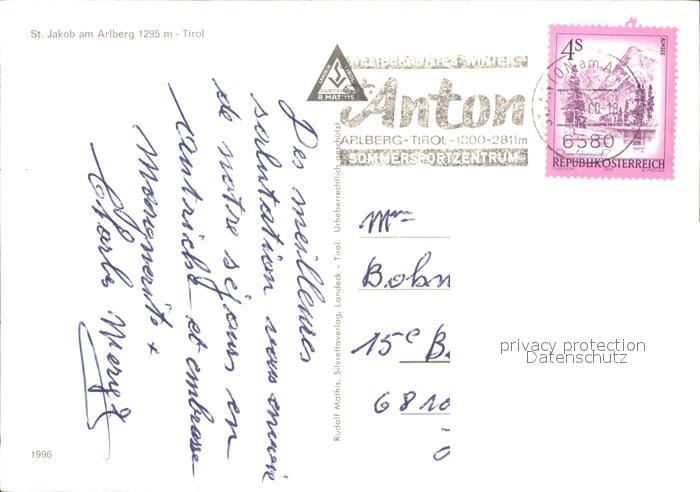 St. Jakob am Arlberg 1295 m - Tirol
WELTBEKANNTES WINTER-
R. MATHIS
St Anton
ARLBERG-TIROL-1300-2811m
SOMMERSPORTZENTRUM
ST. ANTON am A
6580
4S
ALMSEE
REPUBLIK ÖSTERREICH
Des meilleures
salutation vous envoie
de notre séjour en
l'autriche et embrasse
Marguerite +
Charly
Rudolf Mathis, Silvrettaverlag, Landeck - Tirol. Urheberrechtlich geschützt!
Mme
Bohn
15e B.
6810
privacy protection
Datenschutz
1996